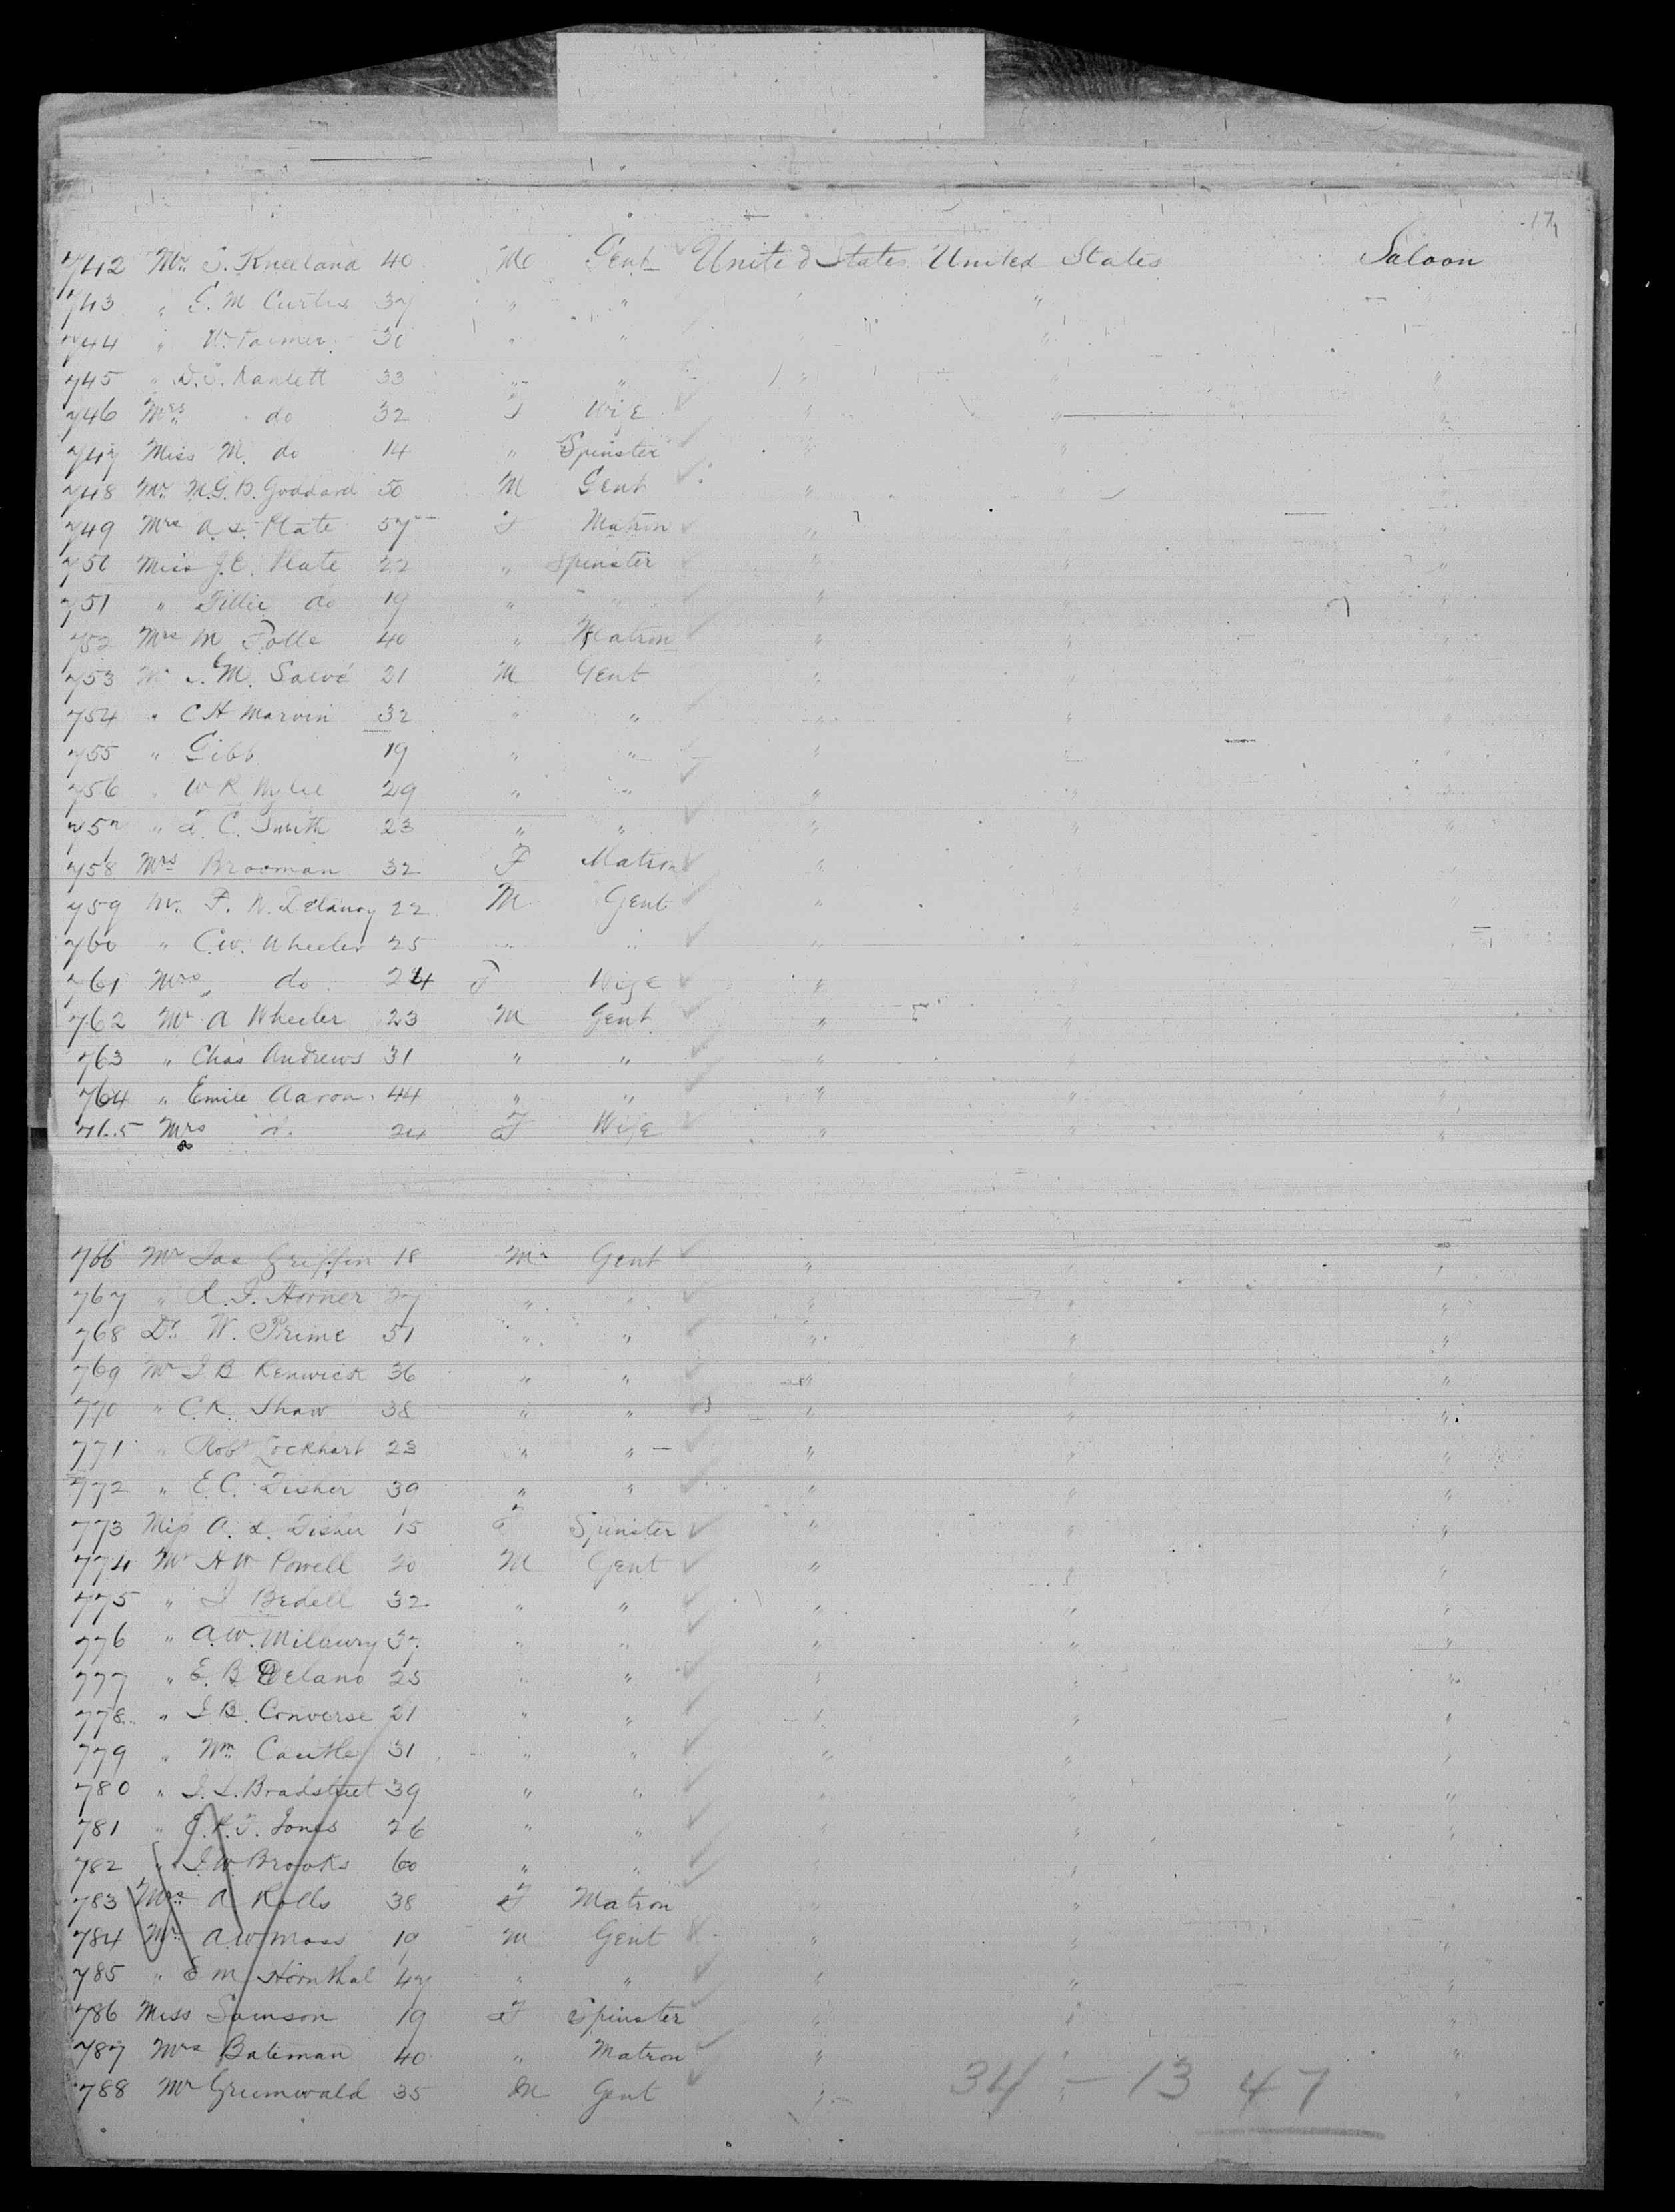 17
742 Mr. S. Kneeland 40 M Gent United States United States Saloon
743 " E. M Curtis 37 " " " "
744 " W. Parmer 30 " " " "
745 " D. S. Ranlett 33 " " " " "
746 Mrs " do 32 F Wife " " "
747 Miss M. do 14 " Spinster " " "
748 Mr. M. G. B. Goddard 50 M Gent " " "
749 Mrs A. L. Plate 57 F Matron " "
750 Miss J. E. Plate 22 " Spinster " " "
751 " Tillie do 19 " " " " "
752 Mrs M Polle 40 " Matron " " "
753 Mr J. M. Salvé 21 M Gent " " "
754 " C H Marvin 32 " " " " "
755 " Gibb 19 " " " " "
756 " W R Wylie 29 " " " " "
757 " A. C. Smith 23 " " " " "
758 Mrs Brooman 32 F Matron " " "
759 Mr. F. W. Delanoy 22 M Gent " " "
760 " C. W. Wheeler 25 " " " " "
761 Mrs " do 24 F Wife " "
762 Mr A Wheeler 23 M Gent " "
763 " Chas Andrews 31 " " " " "
764 " Emile Aaron 44 " " " " "
765 Mrs " 24 F Wife " " "
766 Mr Jas Griffin 18 M Gent " " "
767 " R. J. Horner 37 " " " " "
768 Dr. W. Prime 51 " " " " "
769 Mr J B Renwick 36 " " " " "
770 " C. R. Shaw 38 " " " " "
771 " Robt Lockhart 23 " " " " "
772 " E. C. Fisher 39 " " " " "
773 Miss A. L. Fisher 15 F Spinster " " "
774 Mr H W Powell 20 M Gent " " "
775 " J Bedell 32 " " " " "
776 " A. W. Milbury 37 " " " " "
777 " E. B Delano 25 " " " " "
778 " J. B. Converse 21 " " " " "
779 " Wm Cautley 31 " " " " "
780 " J. S. Bradstreet 39 " " " " "
781 " E. R. T. Jones 26 " " " " "
782 " J. W. Brooks 60 " " " " "
783 Mrs A Rolls 38 F Matron " " "
784 Mr A W Moss 19 M Gent " " "
785 " E M Hornthal 47 " " " " "
786 Miss Samson 19 F Spinster " " "
787 Mrs Bateman 40 " Matron " " "
788 Mr Grumwald 35 M Gent " " "
34 - 13 47